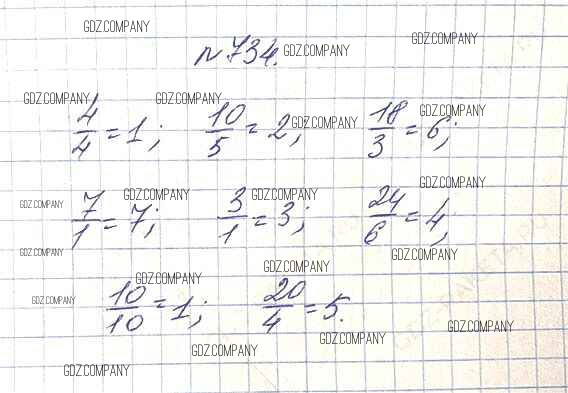 GDZ.COMPANY
№734. GDZ.COMPANY GDZ.COMPANY
GDZ.COMPANY GDZ.COMPANY GDZ.COMPANY
4/4 = 1; 10/5 = 2; 18/3 = 6;
GDZ.COMPANY
GDZ.COMPANY GDZ.COMPANY GDZ.COMPANY GDZ.COMPANY
7/1 = 7; 3/1 = 3; 24/6 = 4;
GDZ.COMPANY GDZ.COMPANY GDZ.COMPANY
GDZ.COMPANY GDZ.COMPANY
10/10 = 1; 20/4 = 5.
GDZ.COMPANY GDZ.COMPANY GDZ.COMPANY
GDZ.COMPANY